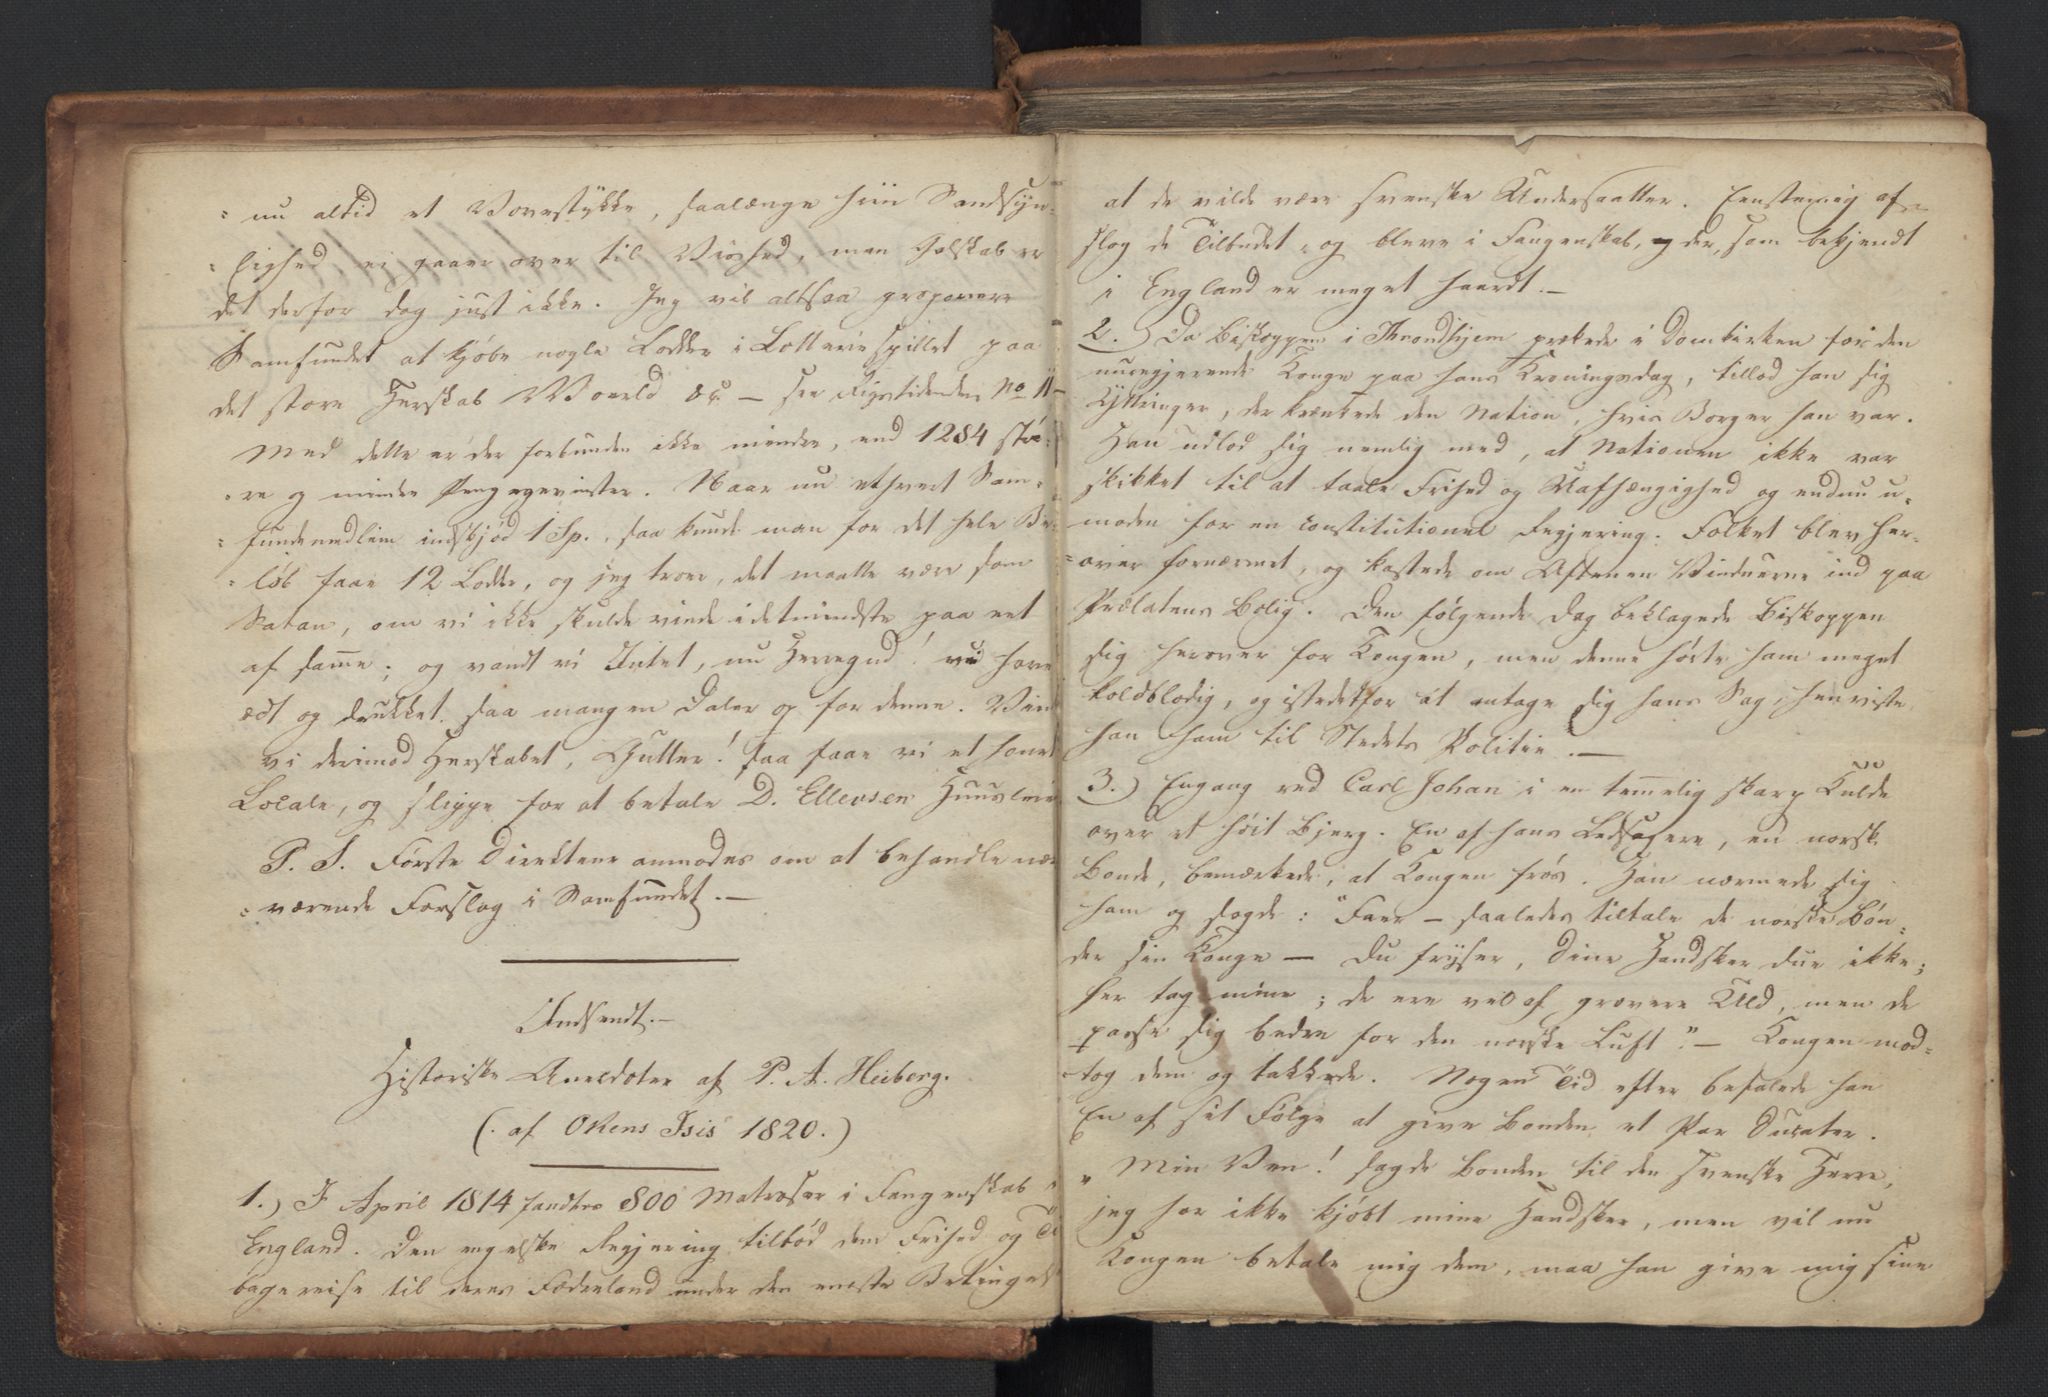 nu altid et Vovestykke, saalænge hiin Sandsyn-
lighed ei gaaer over til Vished, men Galskab er
det derfor dog just ikke. Jeg vil altsaa proponere
Samfundet at kjøbe nogle Lodder i Lotteriespillet paa
det store Herskab Woerld &c – see Rigstidende No 11 –
Med dette er der forbunden ikke mindre, end 1284 stør-
re og mindre Pengegevinster. Naar nu ethvert Sam-
fundsmedlem indskjød 1 Sp., saa kunde man for det hele Be-
løb faae 12 Lodder, og jeg troer, det maatte være som
Satan, om vi ikke skulde vinde idetmindste paa eet
af samme; og vandt vi Intet, nu Herregud! vi have
ædt og drukket saa mangen Daler op før denne. Vind
vi derimod Herskabet, Gutter! saa faae vi et honet
Locale, og slippe for at betale D. Ellevsen Huusleie
P. S. Første Direkteur anmodes om at behandle nær-
værende Forslag i Samfundet. –
Indsendt. –
Historiske Anecdoter af P. A. Heiberg.
(: af Okens Isis 1820.)
1.) I April 1814 fandtes 800 Matroser i Fangenskab i
England. Den engelske Regjering tilbød dem Frihed og Til
bagereise til deres Fædreland under den eneste Betingelse
at de vilde være svenske Undersaatter. Eenstemmig af-
slog de Tilbudet, og bleve i Fangenskab, der, som bekjendt
i England er meget haardt. –
2.) Da Biskoppen i Throndhjem prækede i Domkirken for den
nuregjerende Konge paa hans Kroningsdag, tillod han sig
Yttringer, der krænkede den Nation, hvis Borger han var.
Han udlod sig nemlig med, at Nationen ikke var
skikket til at taale Frihed og Uafhængighed og endnu u-
moden for en constitutionel Regjering. Folket blev her-
over fornærmet, og kastede om Aftenen Vinduerne ind paa
Prælatens Bolig. Den følgende Dag beklagede Biskoppen
sig herover for Kongen, men denne hørte ham meget
koldblodig, og istedetfor at antage sig hans Sag, henviste
han ham til Stedets Politie. –
3.) Engang red Carl Johan i en temmelig skarp Kulde
over et høit Bjerg. En af hans Ledsagere, en norsk
Bonde, bemærkede, at Kongen frøs. Han nærmede sig
ham og sagde: "Faer – saaledes tiltale de norske Bøn-
der sin Konge – Du fryser, Dine Handsker due ikke;
her tag mine; de ere vel af grovere Uld, men de
passe sig bedre for den norske Luft". – Kongen mod-
tog dem og takkede. Nogen Tid efter befalede han
En af sit Følge at give Bonden et Par Ducater.
"Min Ven! sagde Bonden til den svenske Herre,
jeg har ikke kjøbt mine Handsker, men vil nu
Kongen betale mig dem, maa han give mig sine